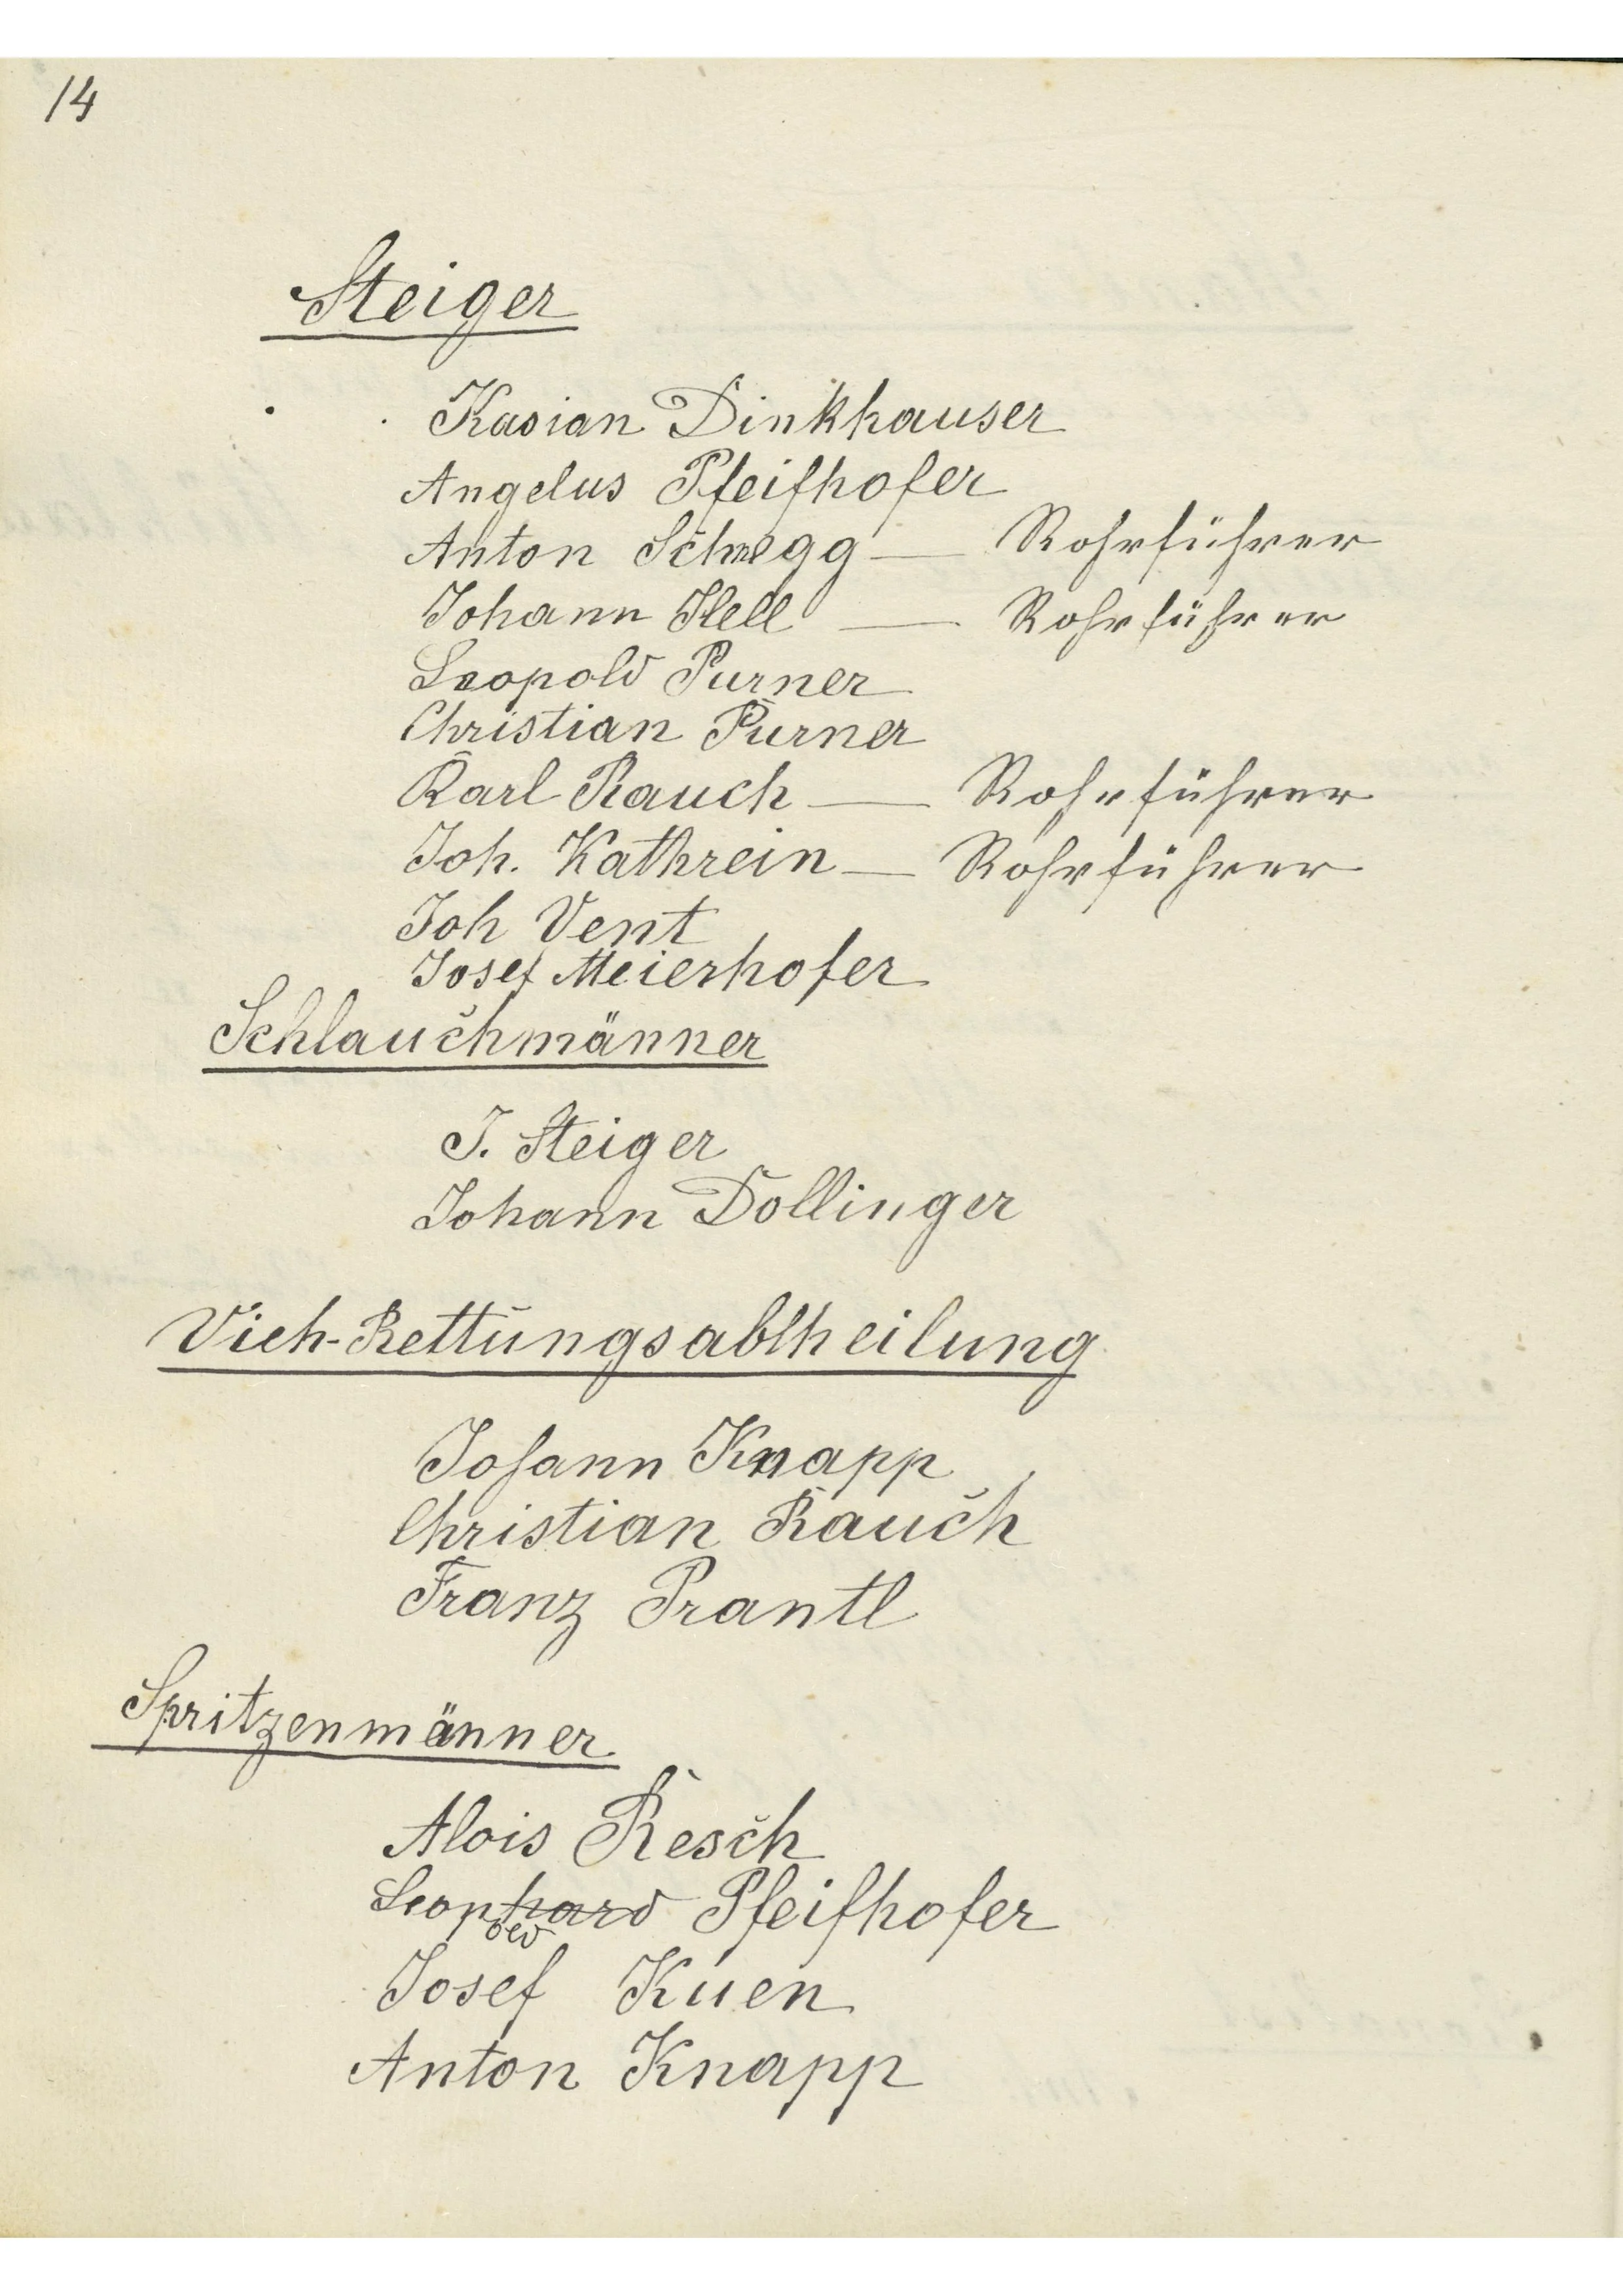 14
Steiger
Kasian Dinkhauser
Angelus Pfeifhofer
Anton Schnegg — Rohrführer
Johann Hell — Rohrführer
Leopold Purner
Christian Purner
Karl Rauch — Rohrführer
Joh. Kathrein — Rohrführer
Joh Vent
Josef Meierhofer
Schlauchmänner
J. Steiger
Johann Dollinger
Vieh-Rettungsabtheilung
Johann Knapp
Christian Rauch
Franz Prantl
Spritzenmänner
Alois Resch
Leonhard Pfeifhofer
old
Josef Kuen
Anton Knapp